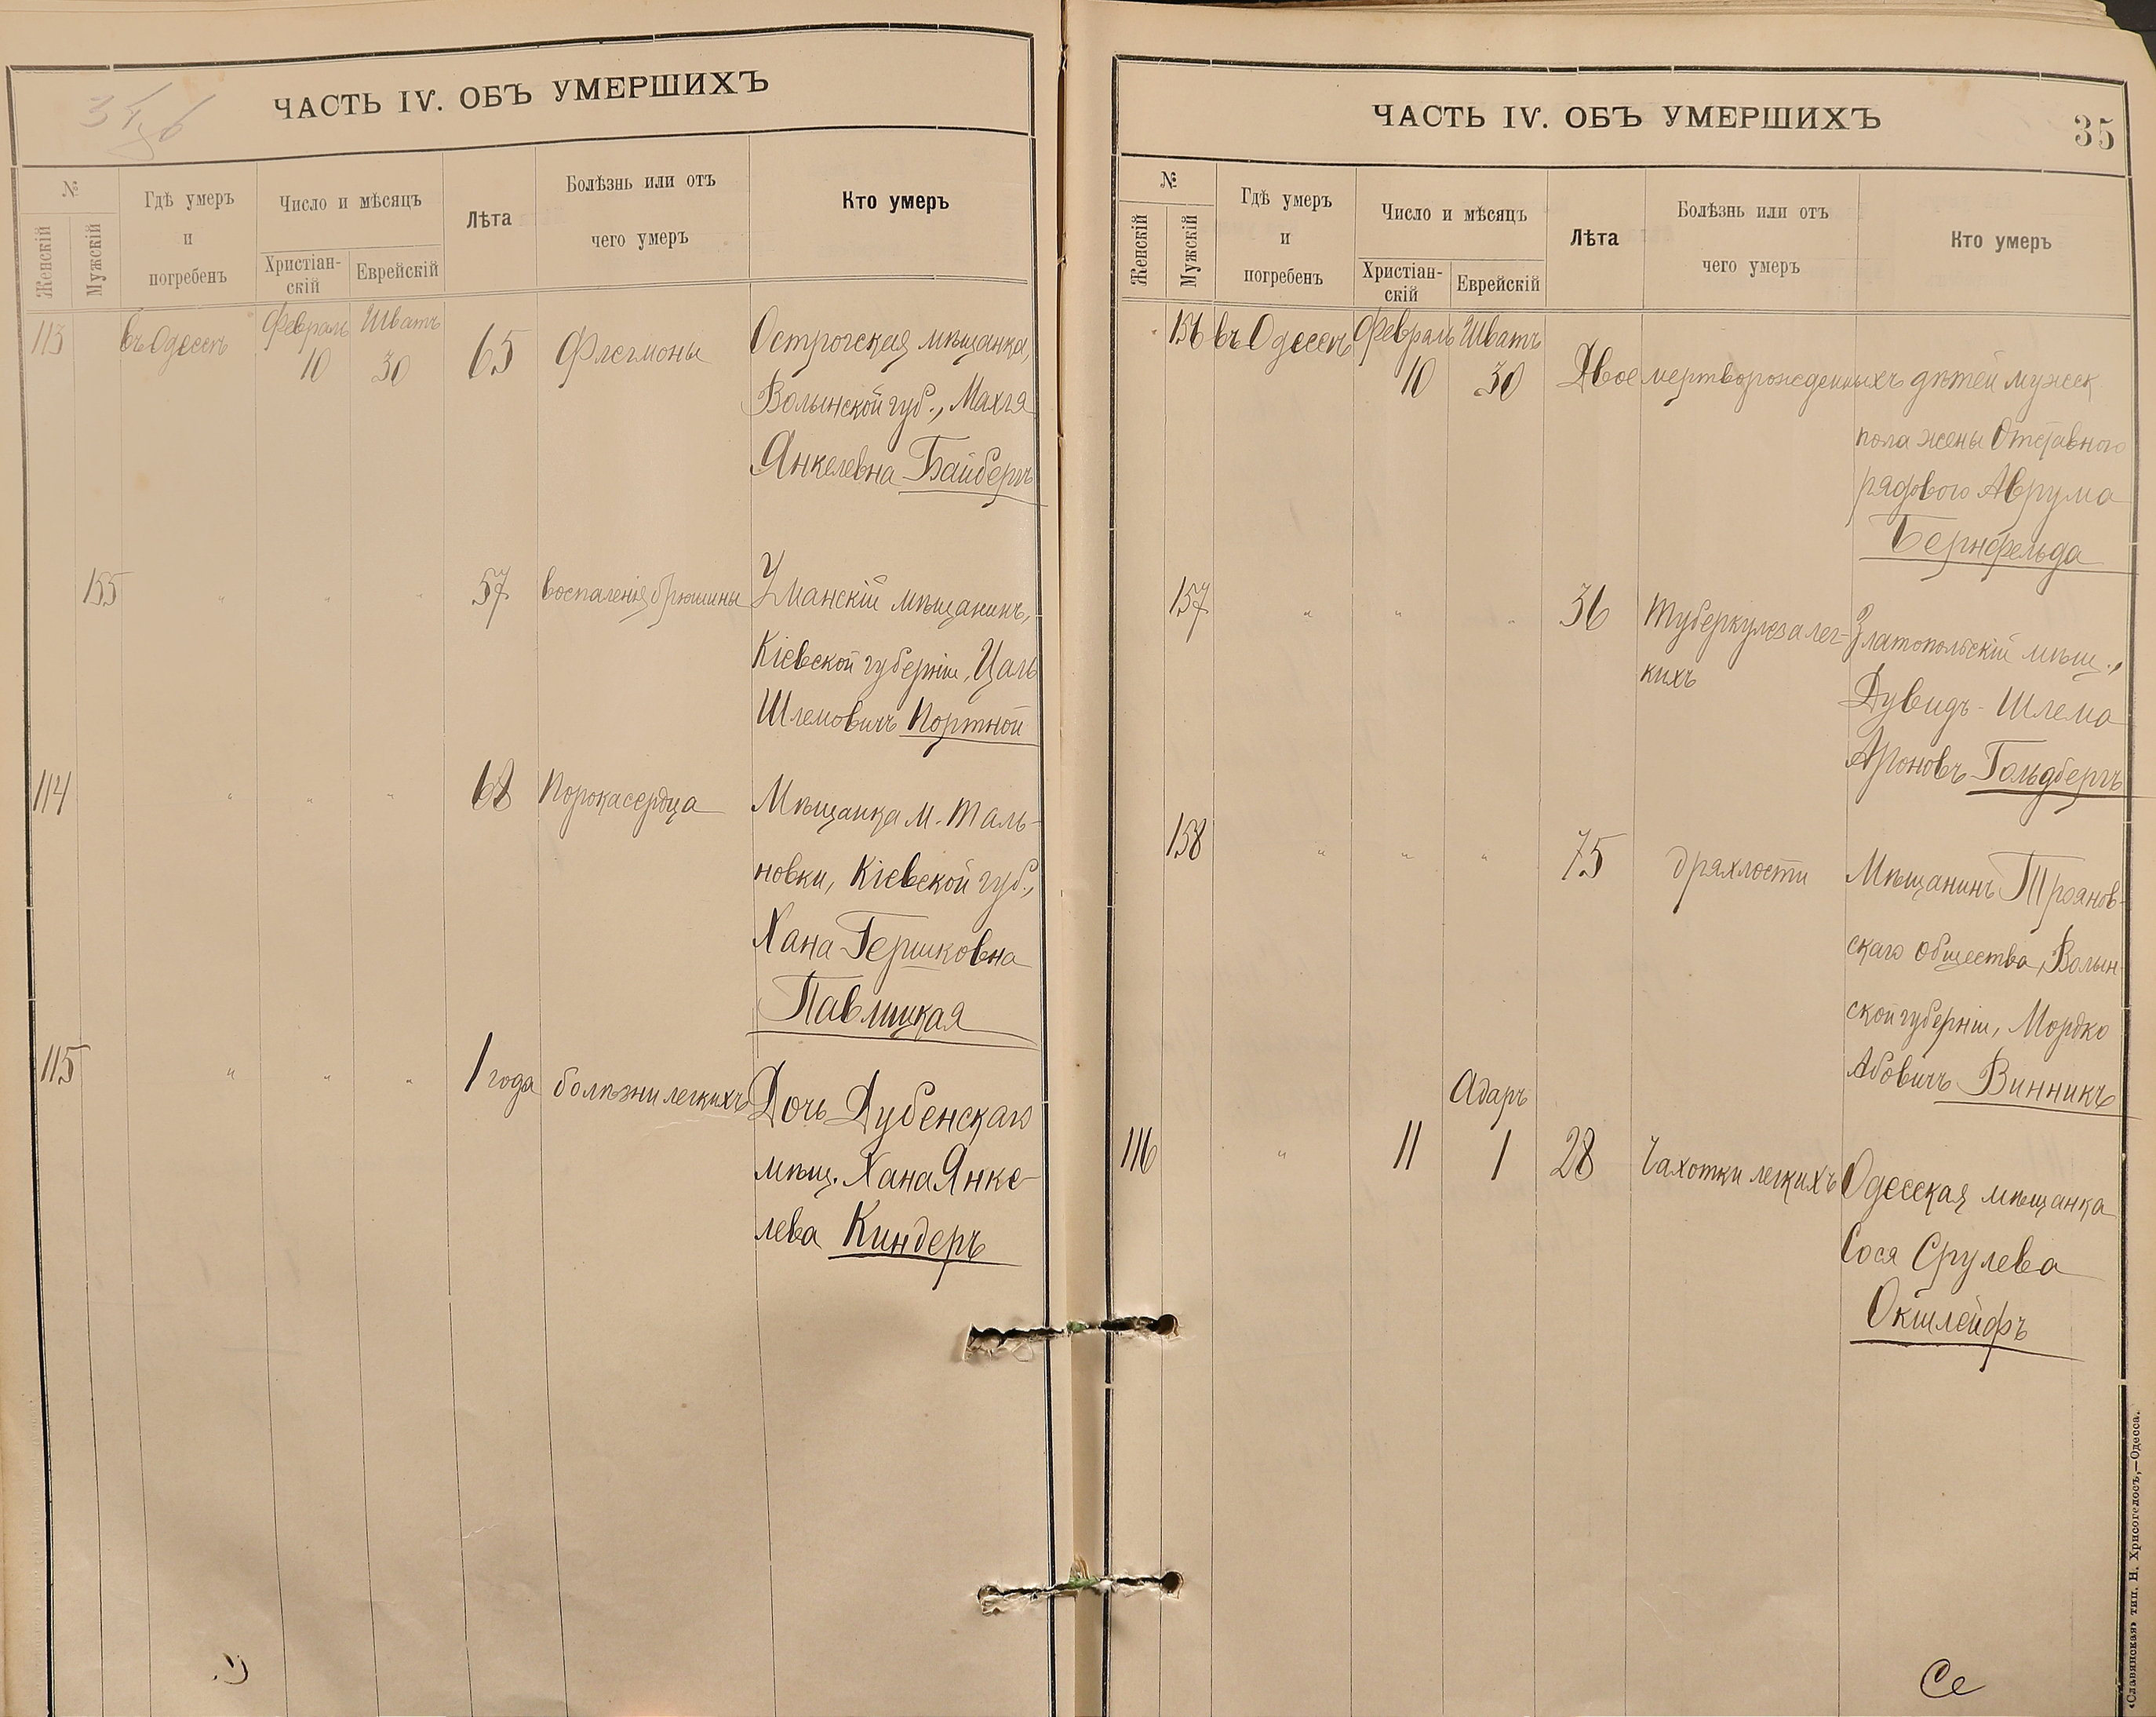 ЧАСТЬ IV. ОБЪ УМЕРШИХЪ
№
Женскій
Мужскій
Гдѣ умеръ
и
погребенъ
Число и мѣсяцъ
Христіан-
скій
Еврейскій
Лѣта
Болѣзнь или отъ
чего умеръ
Кто умеръ
113 въ Одессѣ Февраль 10 Шватъ 30 65 Флегмоны Острогская мѣщанка,
Волынской губ., Махля
Янкелевна Байбергъ
155 " " " 57 воспаленія брюшины Уманскій мѣщанинъ,
Кіевской губерніи, Цаль
Шлемовичъ Портной
114 " " " 68 Порока сердца Мѣщанка м. Таль-
новки, Кіевской губ.,
Хана Гершковна
Павлицкая
115 " " " 1 года болѣзни легкихъ Дочь Дубенскаго
мѣщ. Хана Янке-
лева Киндеръ
ЧАСТЬ IV. ОБЪ УМЕРШИХЪ
35
№
Женскій
Мужскій
Гдѣ умеръ
и
погребенъ
Число и мѣсяцъ
Христіан-
скій
Еврейскій
Лѣта
Болѣзнь или отъ
чего умеръ
Кто умеръ
156 въ Одессѣ Февраль 10 Шватъ 30 Двое мертворожденныхъ дѣтей мужск
пола жены Отставного
рядового Аврума
Бернфельда
157 " " " 36 Туберкулеза лег- Златопольскій мѣщ.,
кихъ Дувидъ-Шлема
Ароновъ Гольдбергъ
158 " " " 75 дряхлости Мѣщанинъ Троянов-
скаго общества, Волын-
ской губерніи, Мордко
Абовичъ Винникъ
Адаръ
116 " 11 1 28 Чахотки легкихъ Одесская мѣщанка
Сося Срулева
Окшлейфъ
Се
«Славянская» тип. Н. Хрисогелосъ,—Одесса.